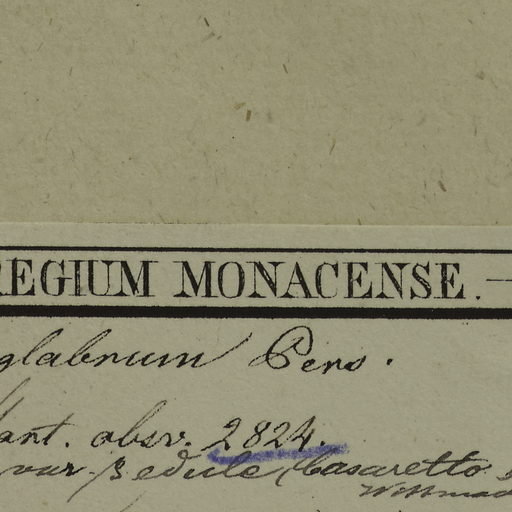 REGIUM MONACENSE. —
glabrum Pers.
ant. absv. 2824.
var. β edule Casaretto